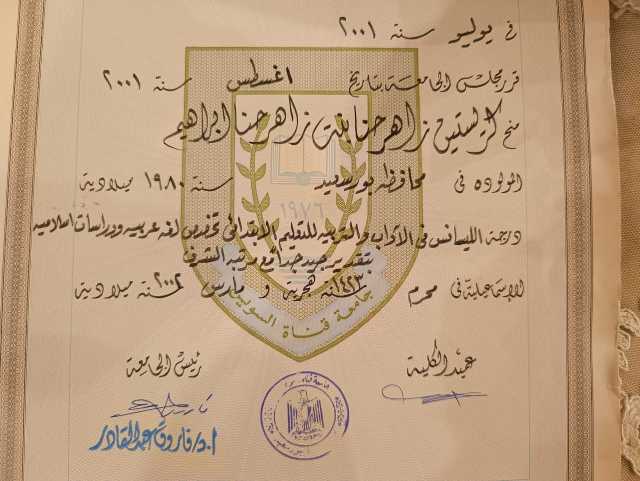 في يوليو سنة ٢٠٠١
قرر مجلس الجامعة بتاريخ اغسطس سنة ٢٠٠١
منح كرستين زاهر حنا بنت زاهر حنا ابراهيم
المولوده في محافظة بورسعيد سنة ١٩٨٠ ميلادية
١٩٧٦
درجة الليسانس في الآداب والتربية للتعليم الابتدائى تخصص لغه عربيه ودراسات اسلاميه
بتقدير جيد جدا مع مرتبه الشرف
الإسماعيلية في محرم سنة ١٤٢٣ هجرية و مارس سنة ٢٠٠٢ ميلادية
جامعة قناة السويس
عميد الكلية
رئيس الجامعة
أ.د/فاروق عبد القادر